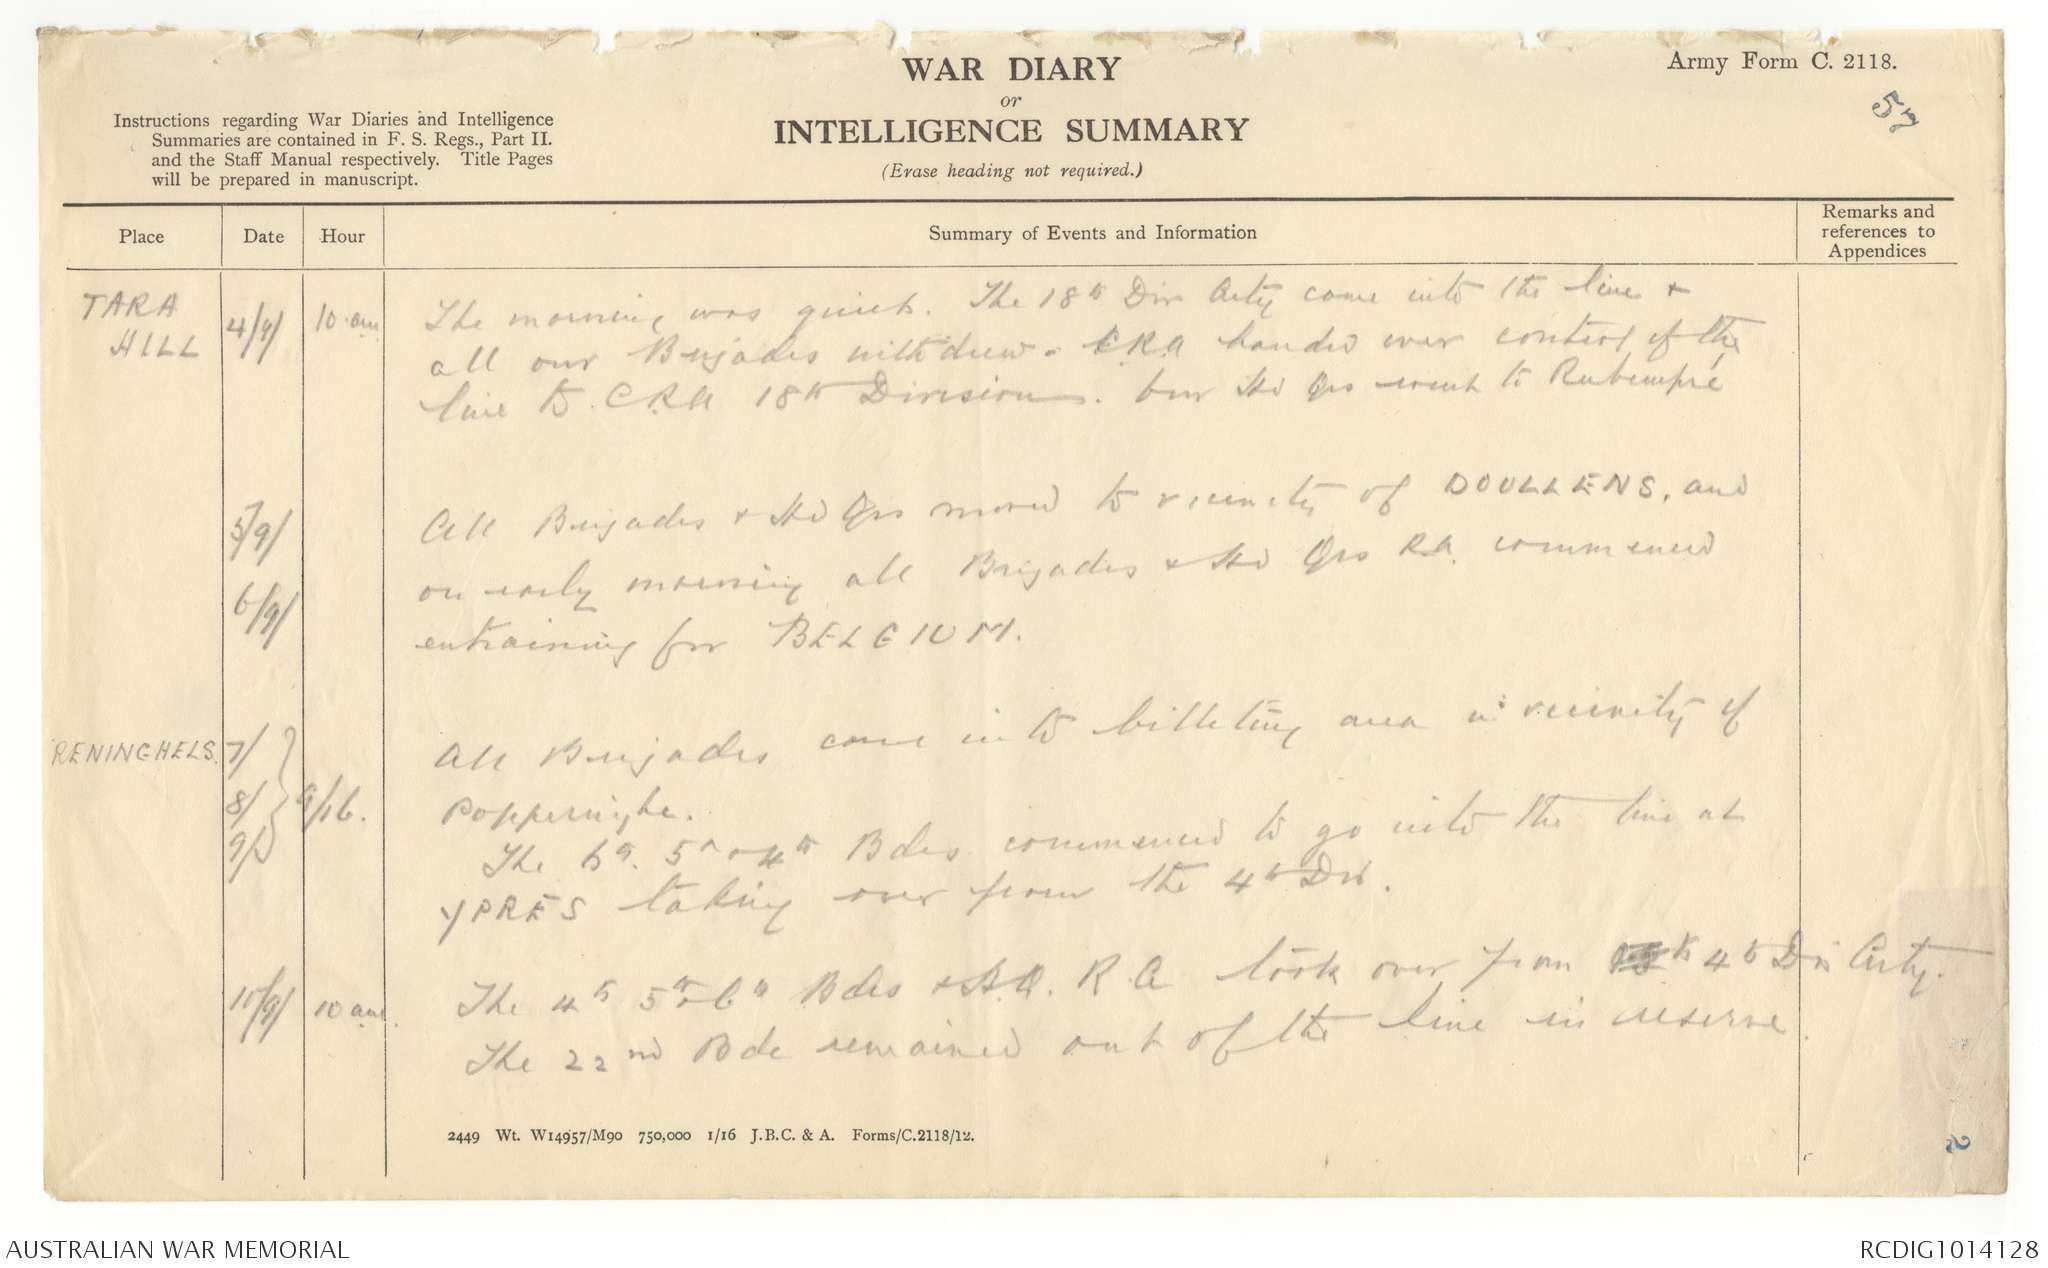 WAR DIARY
or
INTELLIGENCE SUMMARY
(Erase heading not required.)
Army Form C. 2118.
57
Instructions regarding War Diaries and Intelligence
Summaries are contained in F. S. Regs., Part II.
and the Staff Manual respectively. Title Pages
will be prepared in manuscript.
Place Date Hour Summary of Events and Information Remarks and references to Appendices
TARA HILL 4/9/ 10 am The morning was quiet. The 18th Div Arty came into the line &
all our Brigades withdrew - CRA handed over control of the
line to CRA 18th Division. Our Hd Qrs went to Rubempré
5/9/ All Brigades & Hd Qrs moved to vicinity of DOULLENS, and
6/9/ on early morning all Brigades & Hd Qrs RA commenced
entraining for BELGIUM.
RENINGHELS. 7/ 8/ 9/ 9/16. All Brigades came into billeting area in vicinity of
Opperinghe.
The 6th. 5th & 4th Bdes commenced to go into the line at
YPRES taking over from the 4th Div.
10/9/ 10 am. The 4th 5th & 6th Bdes & H.Q. R.A took over from 4th Div Arty.
The 22nd Bde remained out of the line in reserve.
2449 Wt. W14957/M90 750,000 1/16 J.B.C. & A. Forms/C.2118/12.
AUSTRALIAN WAR MEMORIAL
RCDIG1014128